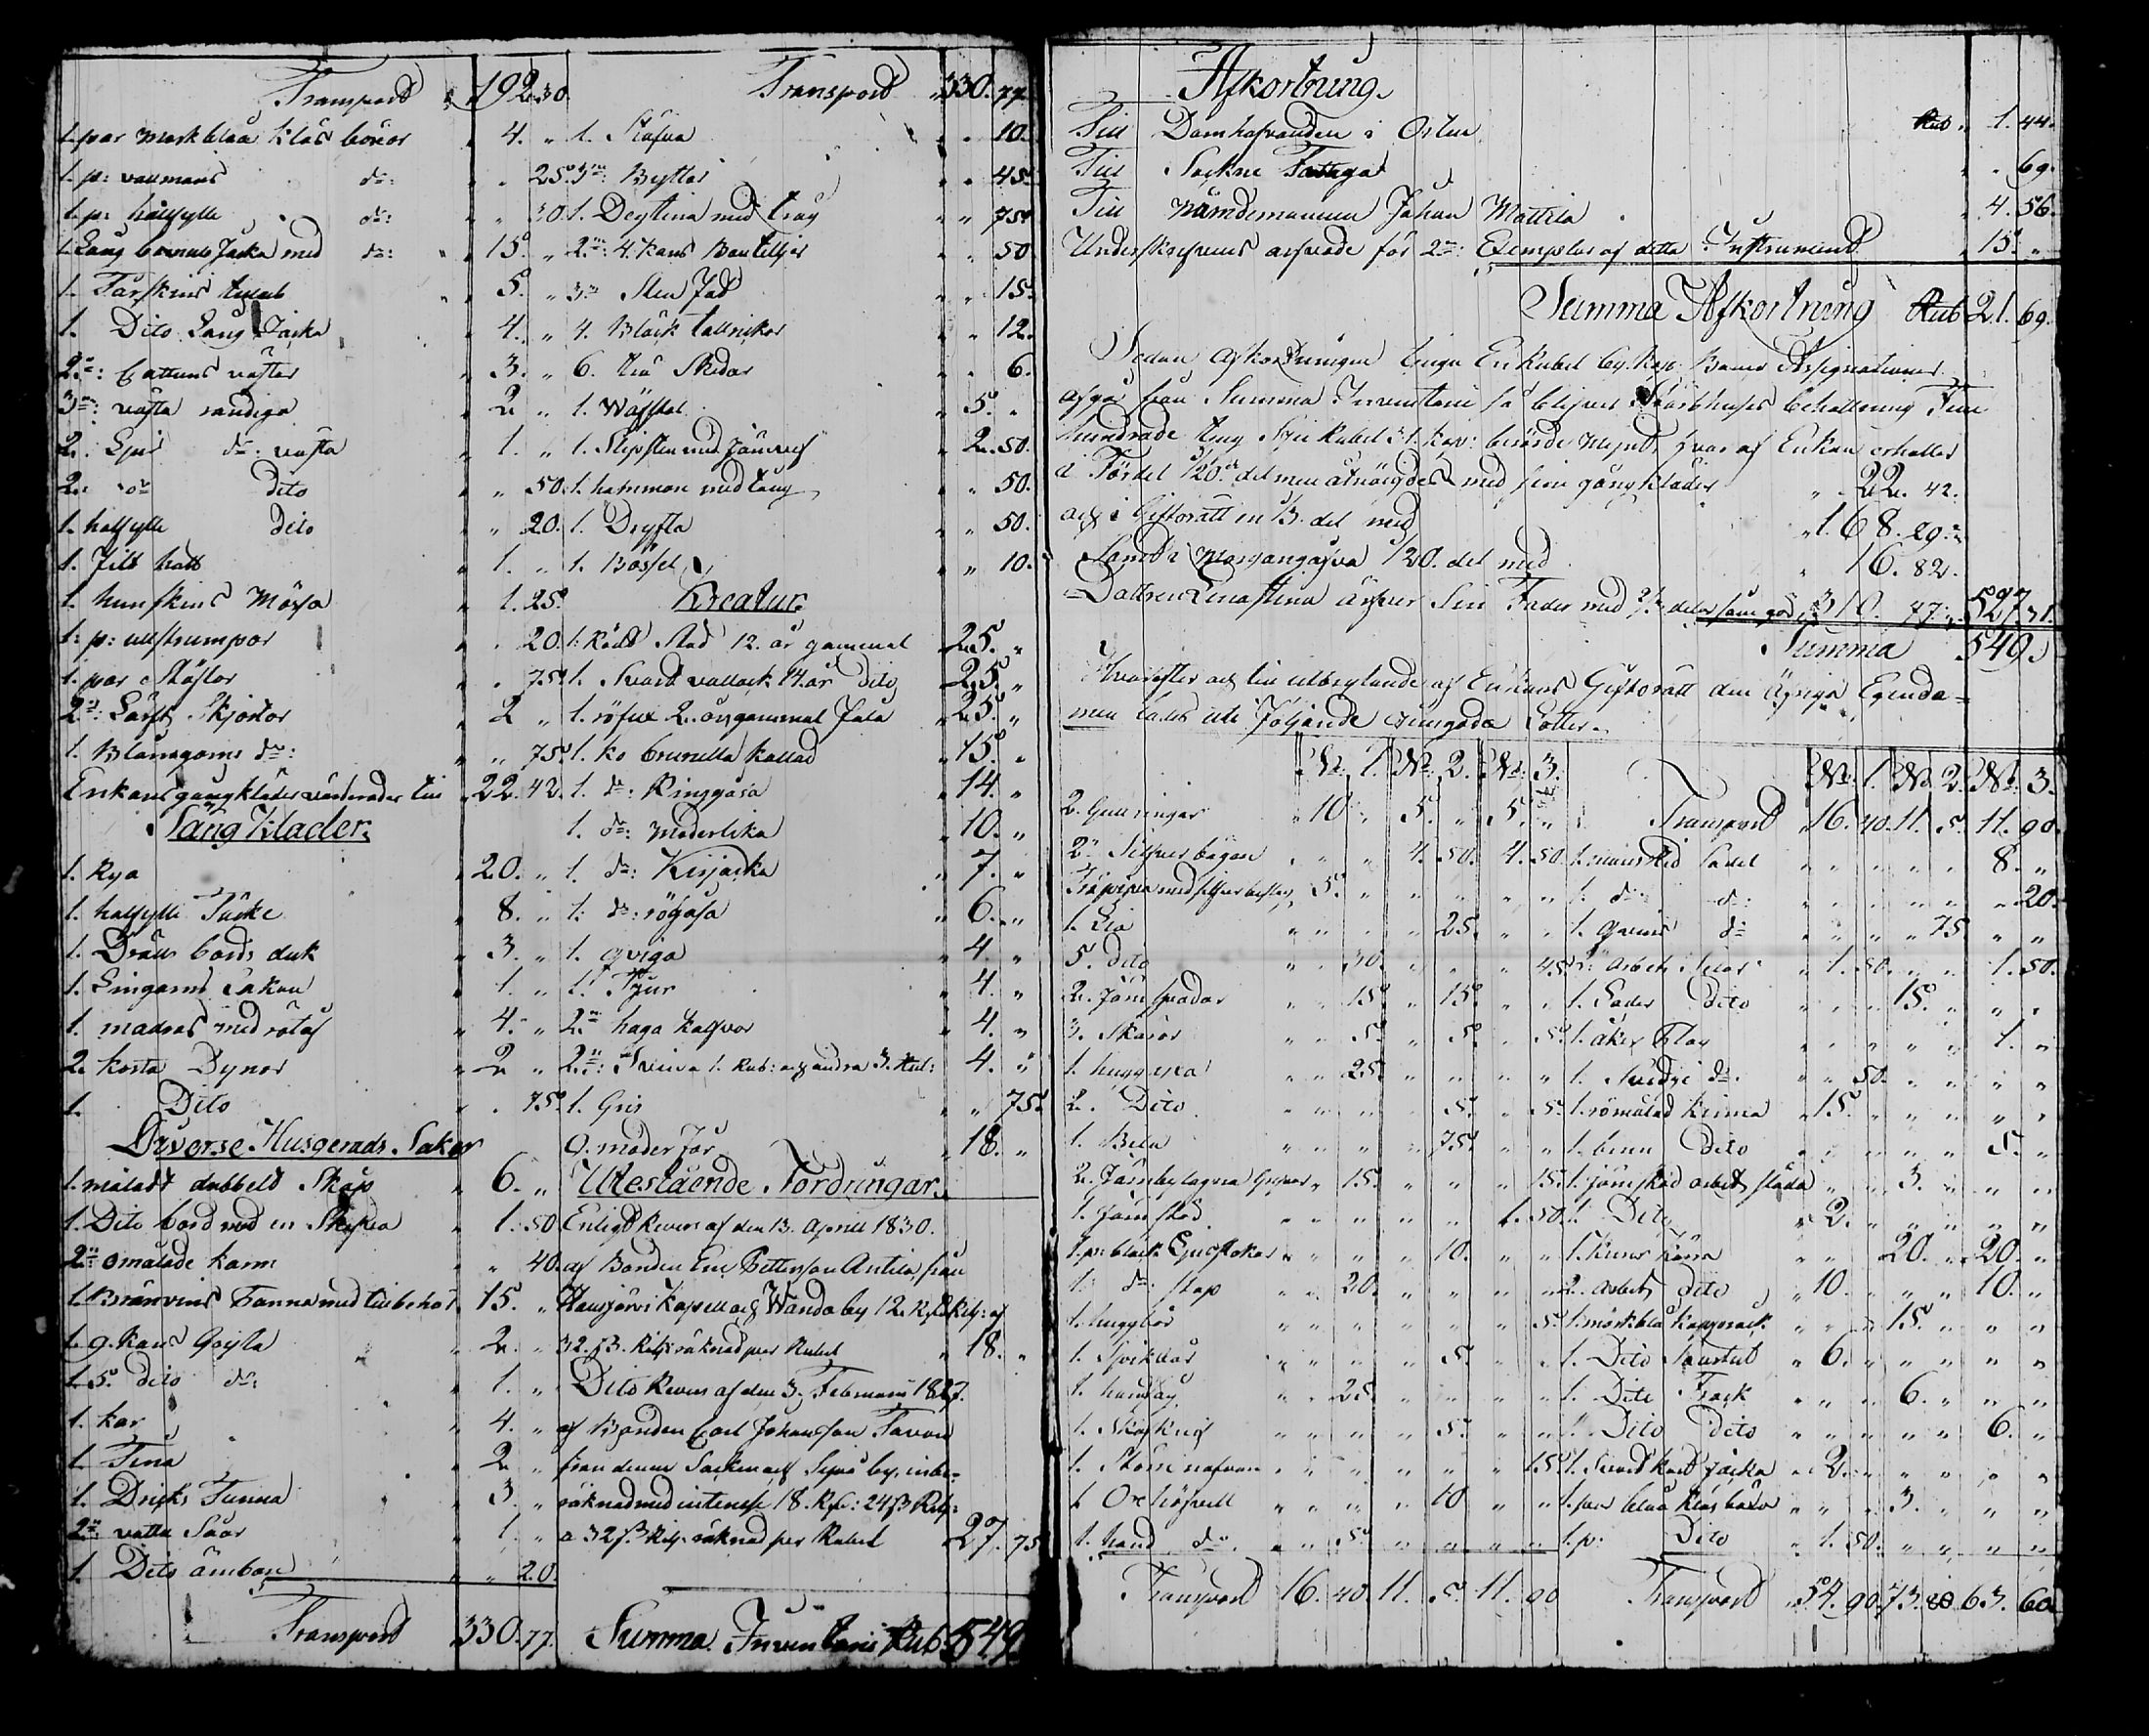 Transport 192.30.
1. par mörkblåa klädes böxor 4. "
1. p: vallmans do: " 25.
1. p: halfylle do: " 30.
1. Lång bonuls Jacka med do: 15. "
1. Fårskins 5. "
1. Dito Lång Jacka 4. "
2ne: Cattuns västar 3. "
3ne: västa randiga 2 "
2. do: västa 1. "
2. do Dito " 50.
1. halfylle Dito " 20.
1. Filt hatt 1. "
1. hunskins Mössa 1. 25.
1. p: ullstrumpor " 20.
1. par Stöflor " 75.
2ne: Lärfts Skjortor 2 "
1. Blångarns do: " 75.
Enkans gångkläder värderades till 22. 42.
Sängkläder.
1. Rya 20. "
1. halfylle Täcke 8. "
1. Dräll bords duk 3. "
1. Lingarns Lakan 1. "
1. madras med rötås 4. "
2. korta Dynor 2 "
1. Dito " 75.
Diverse Husgeråds Saker
1. måladt dubbelt Skåp 6. "
1. Dito bord med en Skifva 1. 50
2ne omålade karm " 40.
1. Bränvins Panna med tillbehör 15. "
1. 9. kans 2. "
1. 5. dito do: 1. "
1. kar 4. "
1. Tina 2 "
1. Dricks Tunna 3. "
2ne vattu Såar 1. "
1. Dito ämbare " 20.
Transport 330. 77.
Transport 330. 77.
1. Stäfva " 10.
3ne: Byttor " 45.
1. Degtina med tråg " 75.
2ne: 4. kans Bouteljer " 50
3ne Sten Fat " 15.
4. Bläck tallrickar " 12.
6. trä Skedar " 6.
1. Wäfstol 5. "
1. Slipsten med Järnvef 2. 50.
1. hammare med tång " 50.
1. Dryfta " 50.
1. Bössel " 10.
Kreatur.
1. Rödt Stod 12. år gammal 25. "
1. Svart vallack 14. år Dito 25. "
1. röfux 2. år gammal Fåla 25. "
1. ko brunella kallad 15. "
1. do: Ringgåsa 14. "
1. do: Moderlika 10. "
1. do: Kirjacka 7. "
1. do: rögåsa 6. "
1. qviga 4. "
1. Tjur 4. "
2ne haga kalfvar 4. "
2ne: Svin 1. Rub: och andra 3. Rub: 4. "
1. Gris " 75.
9. moder Får 18. "
Utestående Fordringar.
Enligt Revers af den 13. Aprill 1830.
af Bonden Eric Pettersson Antila från
Hausjärvi Kapell och Wando by 12. R.
32. ß. Rilss räknad per Rubel 18. "
Dito Revers af den 3. Februarii 1827.
af Bonden Carl Johansson Tavon
från denna Sacken och by, inbe-
räknad med interesse 18. R: 24 ß
a 32 ß. räknad per Rubel 27. 75
Summa Inventarie Rub 549.
Afkortning.
Till Domhafvanden i Orten Rub 1. 44.
Till Sockne Fattiga " 69.
Till Nämdemannen Johan Mattila 4. 56.
Underskrifvens arfvode för 2ne: Exemplar af detta Instrument 15. "
Summa Afkortning Rub 21. 69.
Sedan afkortningen tiugu En Rubel 69. kop: Banco Assignationer
afgår från Summa Inventarie så blifver Stärbhusets Behållning Fem
hundrade tiugu Sju Rubel 31. kop: berörde mynt, hvaraf Enkan erhåller
i Fördel 1/20. del men åtnöjdes med sina gångkläder 22. 42.
och i Giftorätt en 1/3. del med 168. 29.
Samt i Morgongåfva 1/20. del med 16. 82.
Dottren Lena Stina ärfver Sin Fader med 2/3 delar som gör 310. 47. 527. 31.
Summa 549.
Hvarefter och till utbrytande af Enkans Giftorätt den öfriga Egendo-
men lades uti följande jemngoda Lotter.
No: 1. No: 2. No: 3.
2. Gullringar 10 " 5. " 5. "
2ne Silfver bägare " " 4. 50. 4. 50
Träpipa med silfverbeslag 5. " " " " "
1. Lia " " " 25. " "
5. Dito " 30. " " " 45.
2. Järn spadar " 15. " 15. " "
3. Skäror " 5. " 5. " 5.
1. huggyxa " 25. " " " "
2. Dito " " " 5. " 5.
1. Bila " " " 75. " "
2. Järnbeslagna Grepar " 15. " " " 15.
1. Järn stöd " " " " 1. 50.
1. pr: bläck Ljusstakar " " " 10. " "
1. do: stop " 20. " " " "
1. huggbår " " " " " 5.
1. Spikbår " " " 5. " "
1. handsåg " 25. " " " "
1. Skafknif " " " 5. " "
1. Stöm nafvare " " " " " 15.
1. " " " 10 " "
1. hand do. " 5. " " " "
Transport 16. 40. 11. 5. 11. 90
No: 1. No. 2. No. 3.
Transport 16. 40. 11. 5. 11. 90.
1. Sadel " " " " 8. "
1. do: do: " " " " " 20.
1. qvins do: " " " 75. " "
2: Arbets Selar 1. 50. " " 1. 50.
1. Läder Dito " " 15. " " "
1. åker Plog " " " " 1. "
1. Svedje do. " 50. " " " "
1. römålad kärra 15. " " " " "
1. Dito " " " " 5. "
1. järnskod arbets släda " " 3. " " "
1. Dito 2. " " " " "
1. kärra " " 20. " 20. "
2. Arbets Dito 10. " " " 10. "
1. mörkblå kapprock " " 15. " " "
1. Dito Sourtut 6. " " " " "
1. Dito Frack " " 6. " " "
1. Dito Dito " " " " 6. "
1. Svart kort Jacka 2. " " " " "
1. par blåa klädes böxor " " 3. " " "
1. p: Dito 1. 50. " " " "
Transport 54. 90. 73. 80 63. 60